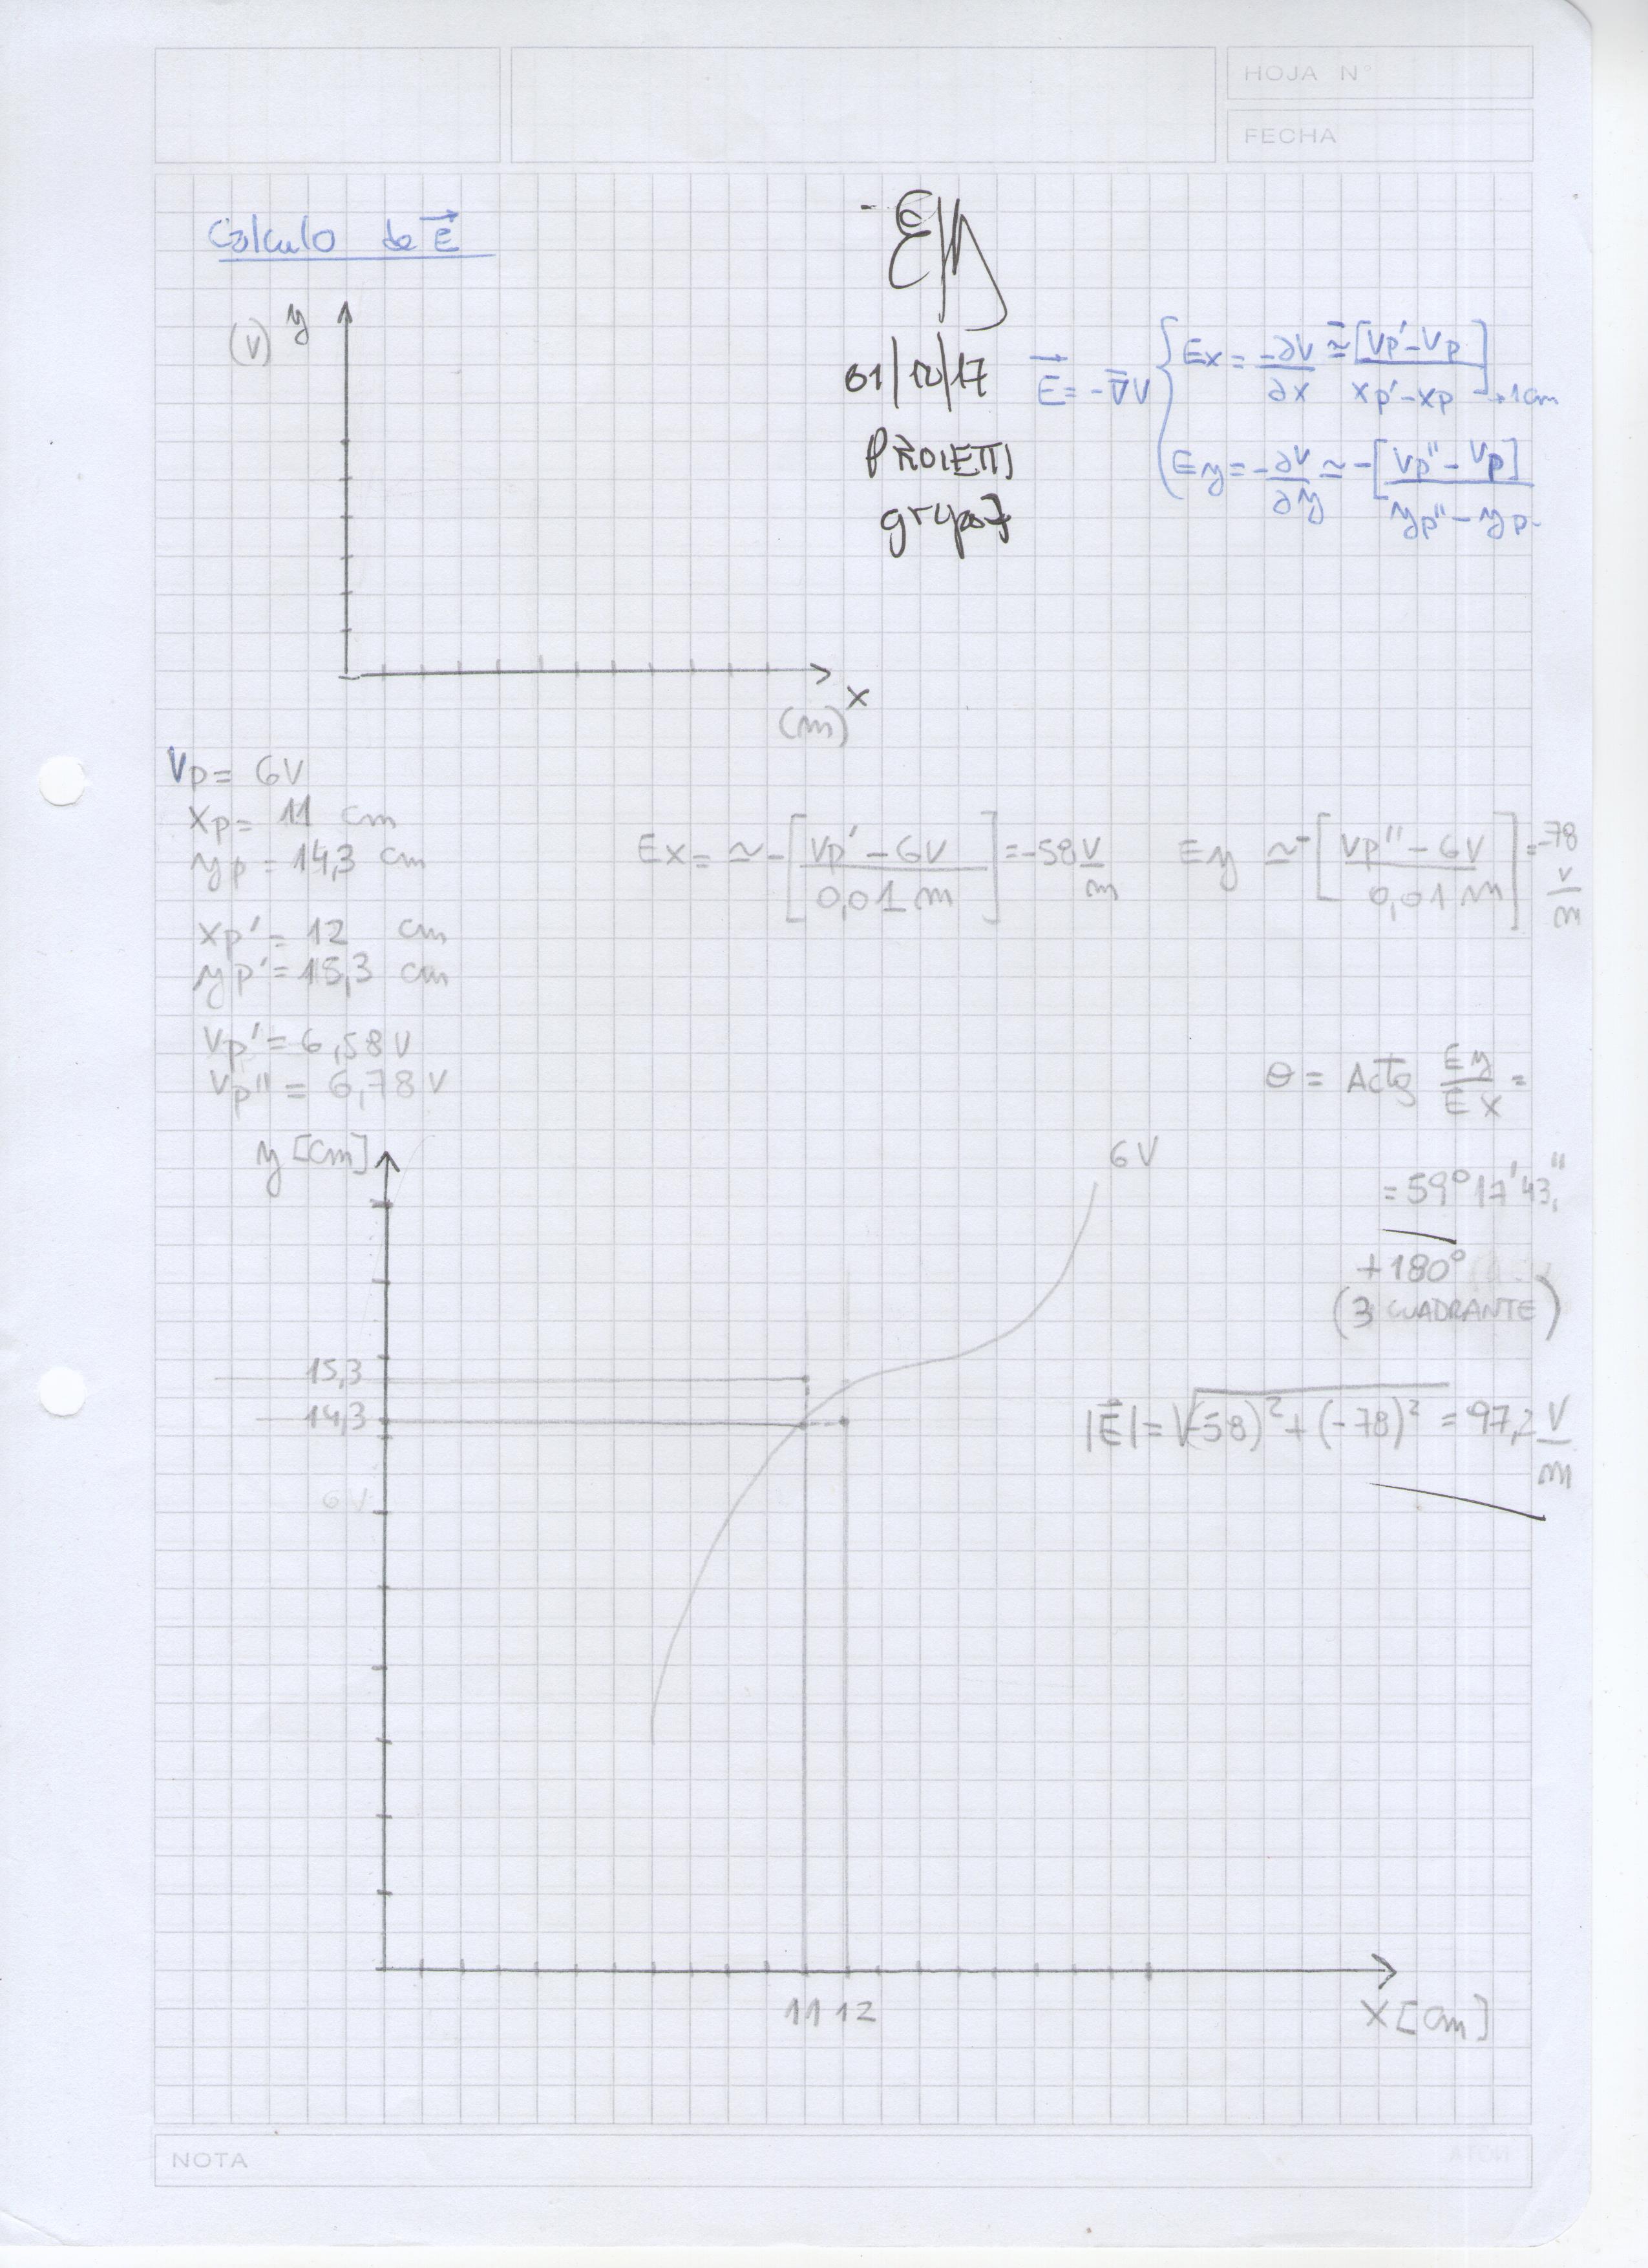 HOJA N°
FECHA
Calculo de E⃗
(V) y
01/10/17
PROIETTI
grupo 7
E⃗ = -∇⃗V { Ex = -∂V/∂x ≃ -[Vp' - Vp / xp' - xp] → 1cm
Ey = -∂V/∂y ≃ -[Vp'' - Vp / yp'' - yp]
x
(m)
Vp = 6V
xp = 11 cm
yp = 14,3 cm
xp' = 12 cm
yp' = 15,3 cm
Vp' = 6,58 V
Vp'' = 6,78 V
Ex = ≃ -[Vp' - 6V / 0,01 m] = -58 V/m
Ey ≃ -[Vp'' - 6V / 0,01 m] = -78 V/m
θ = Actg Ey/Ex =
= 59° 17' 43''
+180°
(3 CUADRANTE)
|E⃗| = √(-58)² + (-78)² = 97,2 V/m
y [cm]
6V
15,3
14,3
6V
11 12
X [cm]
NOTA